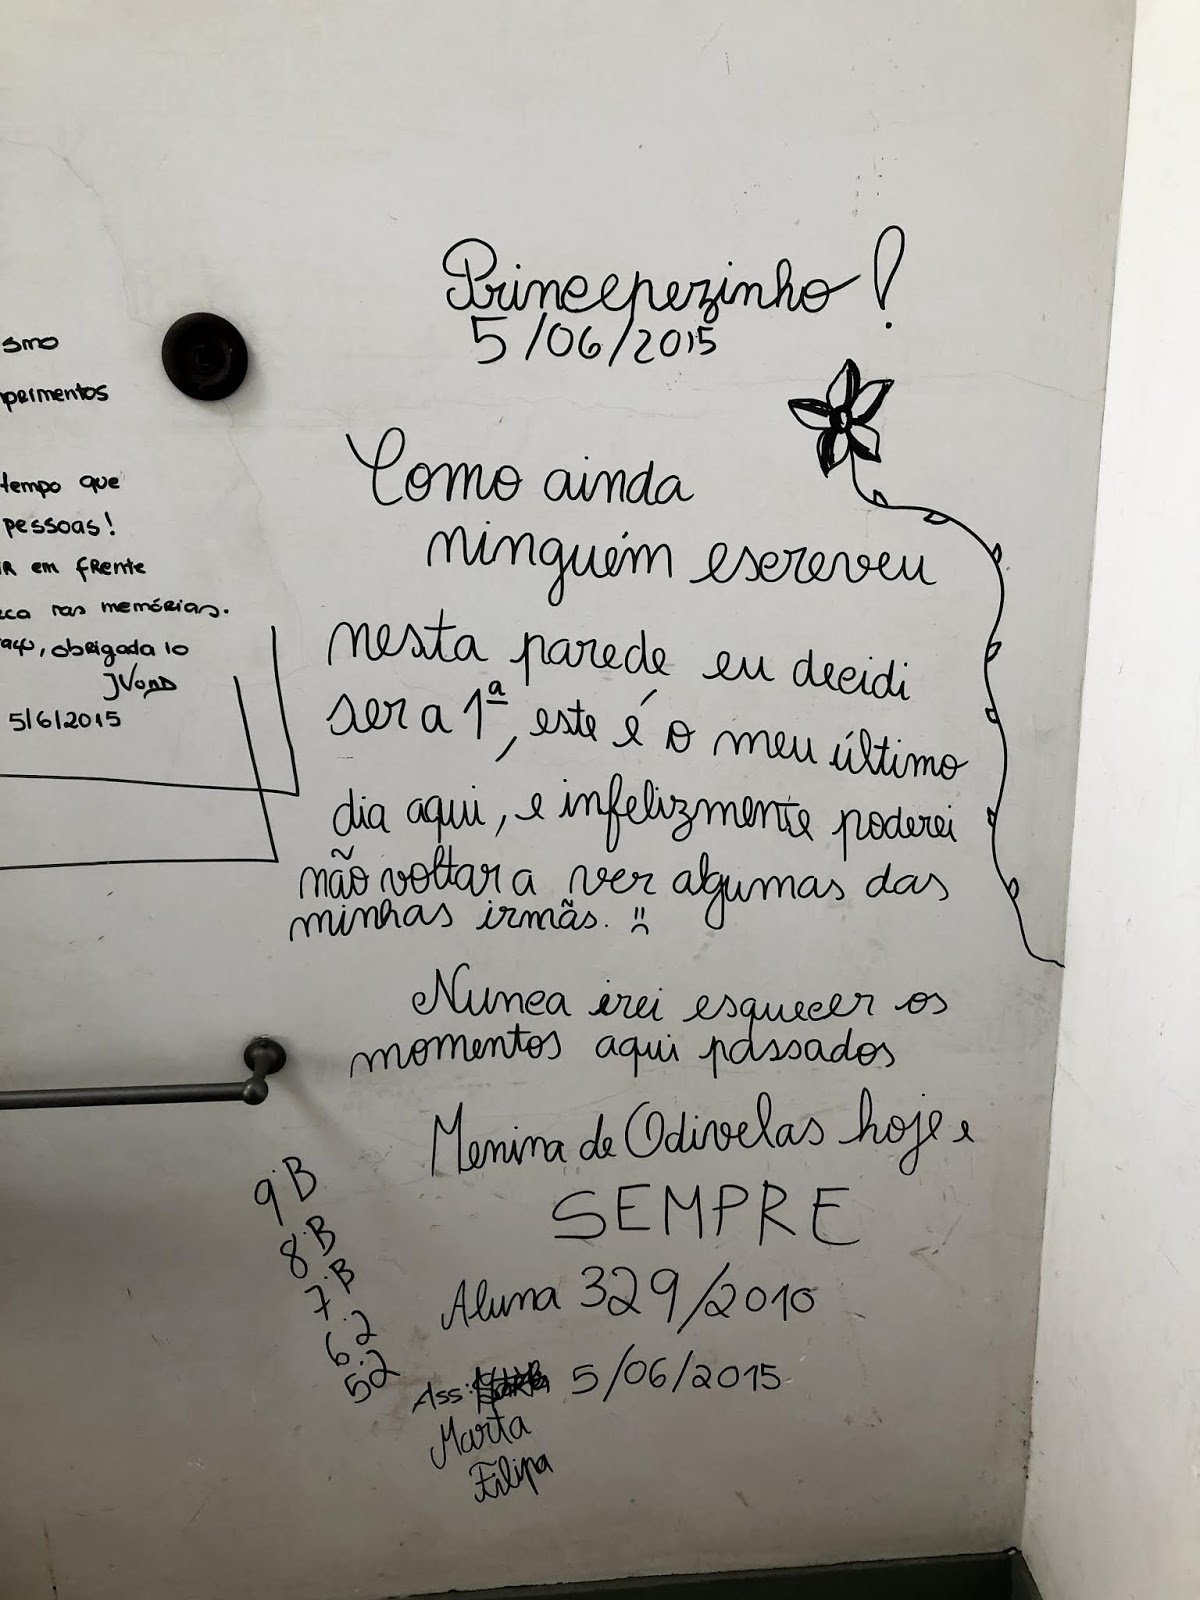 Princepezinho!
5/06/2015
Como ainda
ninguém escreveu
nesta parede eu decidi
ser a 1ª, este é o meu último
dia aqui, e infelizmente poderei
não voltar a ver algumas das
minhas irmãs.
Nunca irei esquecer os
momentos aqui passados
Menina de Odivelas hoje e
SEMPRE
Aluna 329/2010
Ass: 5/06/2015
Marta
Filipa
9ºB
8ºB
7ºB
6º2
5º2
smo
tempo que
pessoas!
IR em frente
nas memórias.
obrigada 10
5/6/2015